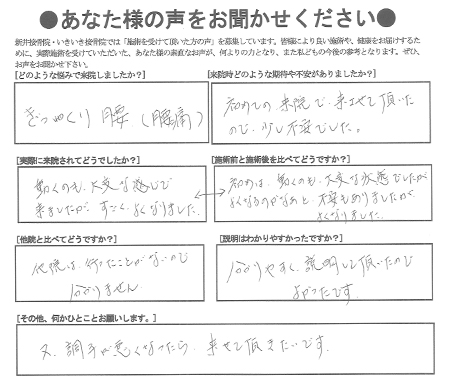 ●あなた様の声をお聞かせください●
新井接骨院・いきいき接骨院では「施術を受けて頂いた方の声」を募集しています。皆様により良い施術や、健康をお届けするた
めに、実際施術を受けていただいた、あなた様の素直なお声が、何よりの力となり、また私どもの今後の参考となります。ぜひ、
お声をお聞かせ下さい。
[どのような悩みで来院しましたか?]
ぎっくり腰（腰痛）
[来院時どのような期待や不安がありましたか?]
初めての来院で、来させて頂いた
ので、少し不安でした。
[実際に来院されてどうでしたか?]
動くのも、大変な感じで
来ましたが、すごく、よくなりました。
[施術前と施術後を比べてどうですか?]
初めは、動くのも、大変な状態でしたが
よくなるのかなあと、不安もありましたが、
よくなりました。
[他院と比べてどうですか?]
他院は、行ったことがないので
分かりません。
[説明はわかりやすかったですか?]
分かりやすく、説明して頂いたので
よかったです。
[その他、何かひとことお願いします。]
又、調子が悪くなったら、来させて頂きたいです。